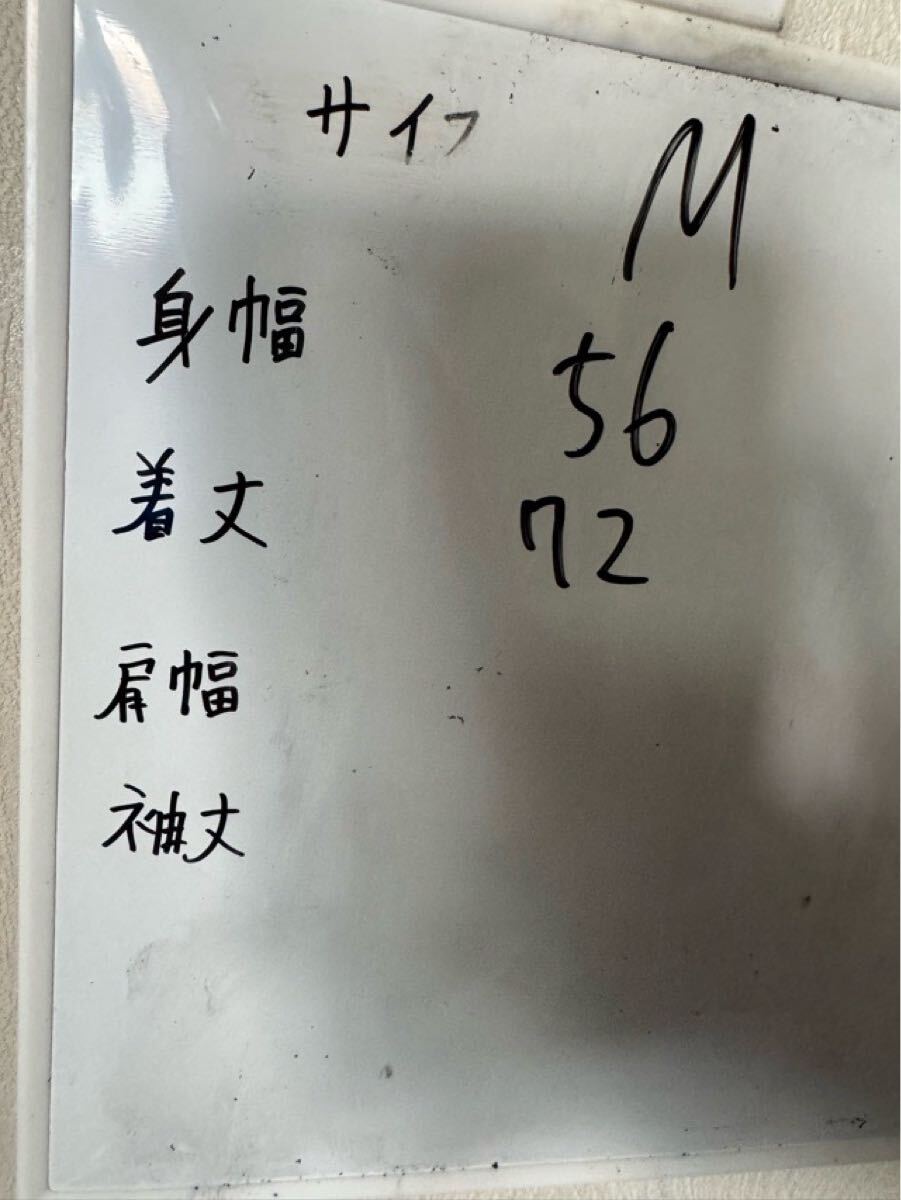 サイフ M
身幅 56
着丈 72
肩幅
袖丈